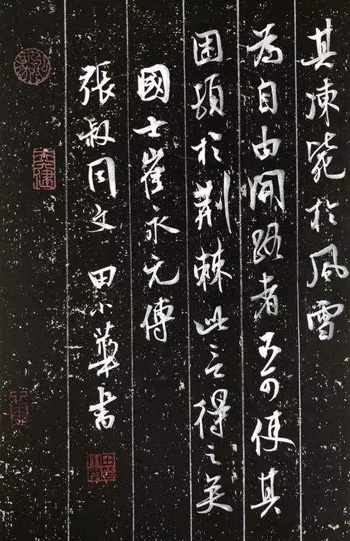 其凍毙於風雪
为自由開路者不可使其
困頓於荆棘此言得之矣
國士崔永元傳
張叔同文 田小華書